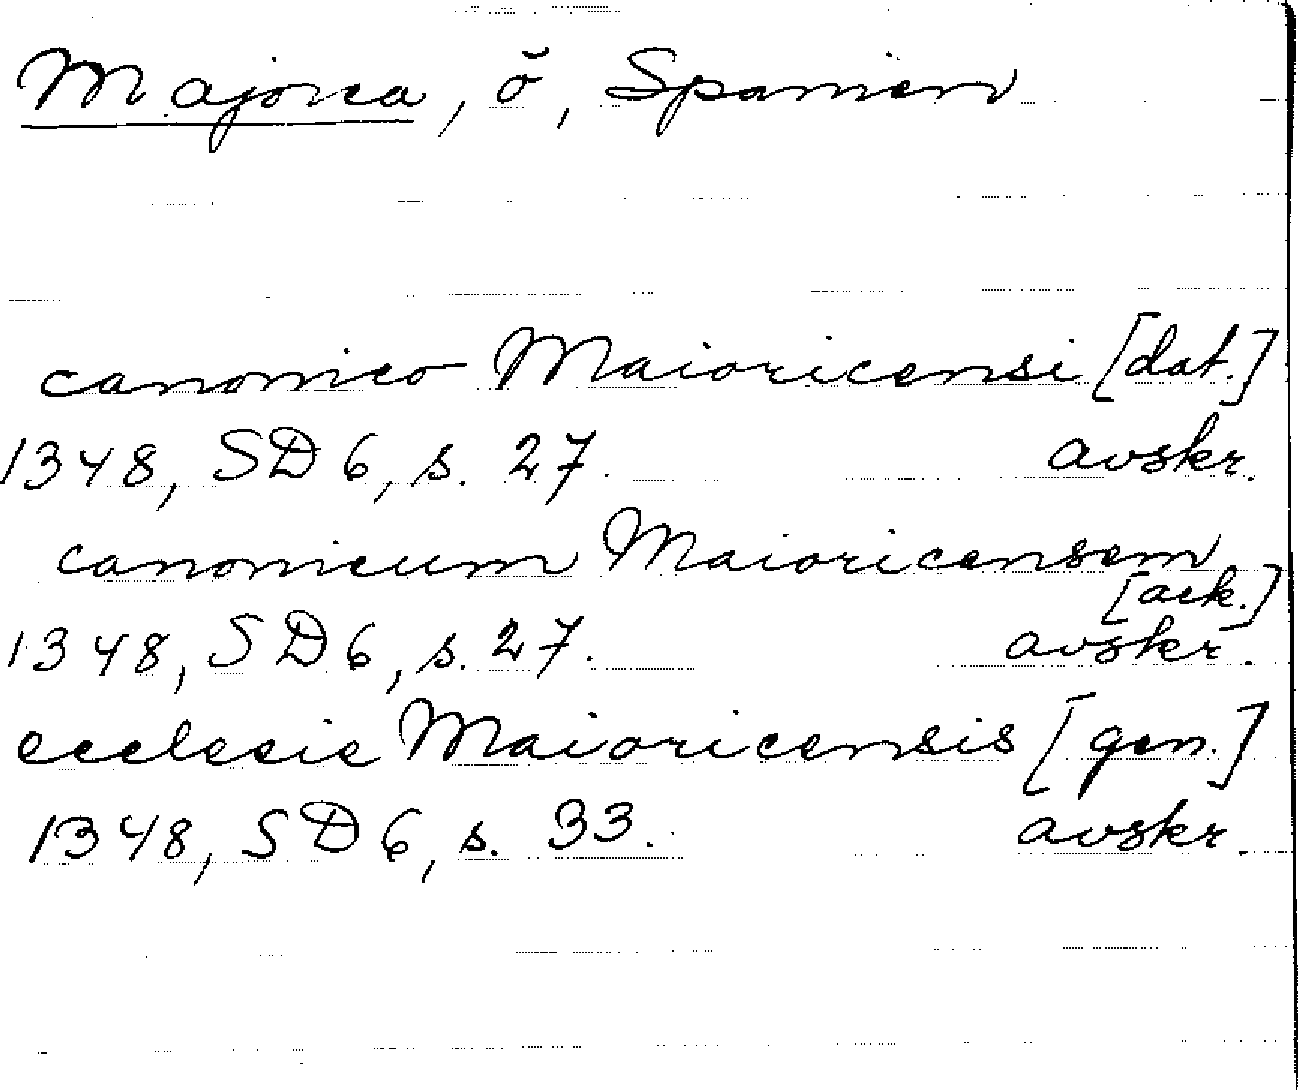 Majorca, ö, Spanien
canonico Maioricensi [dat.]
1348, SD 6, s. 27. avskr.
canonicum Maioricensem
[ack.]
1348, SD 6, s. 27. avskr.
ecclesie Maioricensis [gen.]
1348, SD 6, s. 33. avskr.